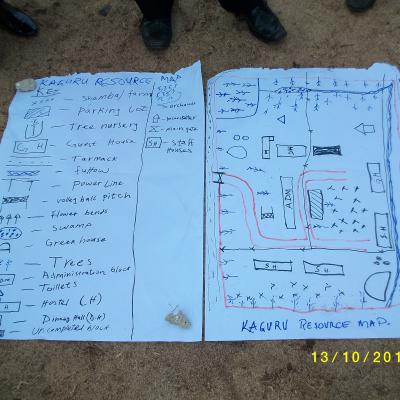 KAGURU RESOURCE MAP
KEY
Shamba/farm
Parking Lot
Tree nursery
G, H
Guest House
Tarmack
fullow
Power Line
volley ball pitch
flower beads
Swamp
Green house
Trees
Administration block
Toilets
Hostel (H)
Dining Hall (D.H)
Un completed block
orchards
main gate
SH
staff Houses
ADM
SH
SH
SH
KAGURU RESOURCE MAP.
13/10/201